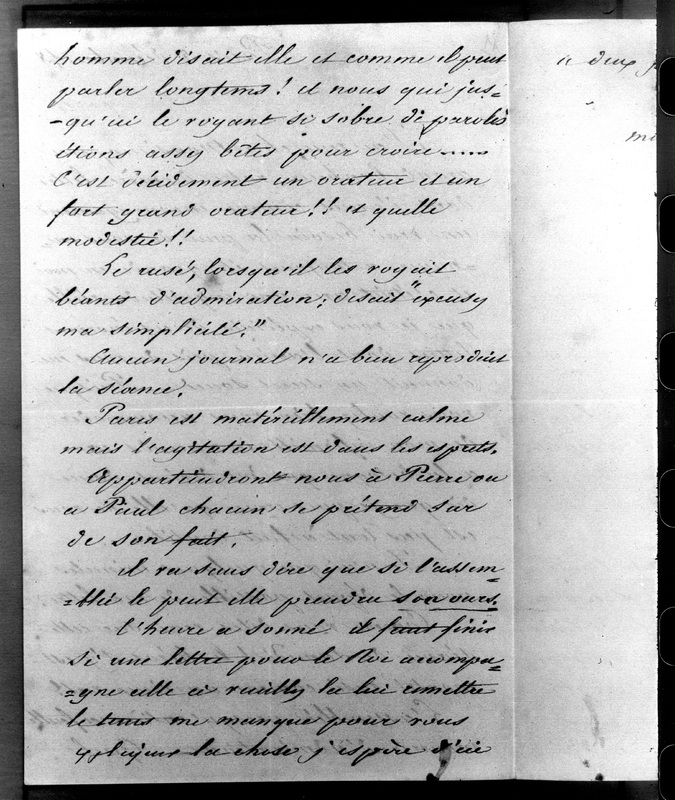 homme disait elle et comme il peut
parler longtems! et nous qui jus-
-qu'ici le voyant si sobre de paroles
étions assez bêtes pour croire.....
C'est décidement un orateur et un
fort grand orateur!! et quelle
modestie!!
Le rusé, lorsqu'il les voyait
béants d'admiration, disait "excusez
ma simplicité."
Aucun journal n'a bien reproduit
la séance.
Paris est matériellement calme
mais l'agitation est dans les esprits.
Appartiendront nous à Pierre ou
a Paul chacun se prétend sur
de son fait.
il va sans dire que si l'assem=
=blée le peut elle prendra son ours.
l'heure a sonné il faut finir
Si une lettre pour le Roi accompa=
=gne celle ci veuillez la lui remettre
le tems me manque pour vous
expliquer la chose j'espère d'ici
a deux j